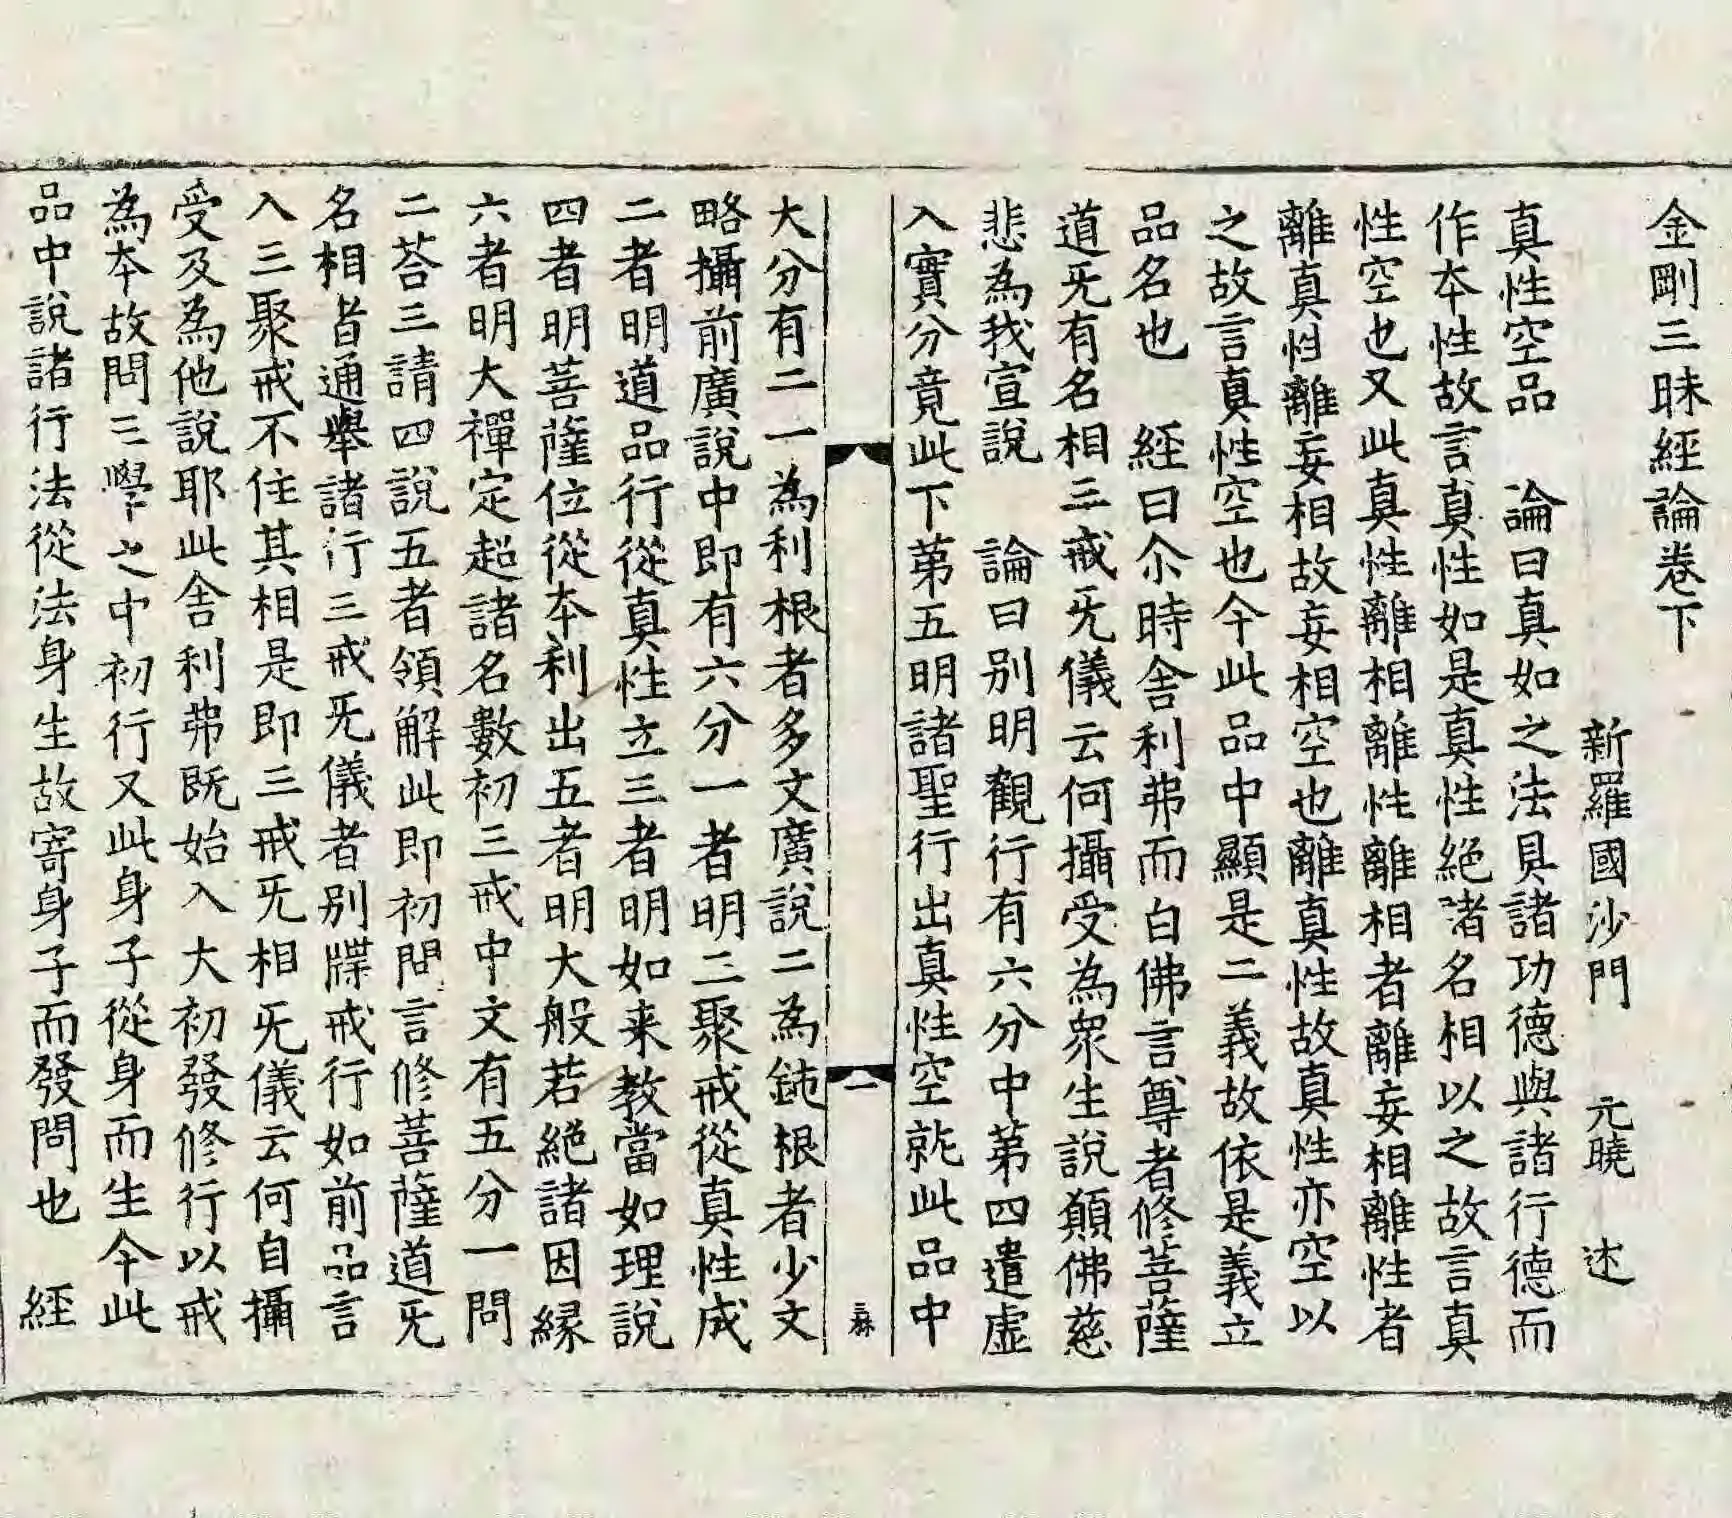 金剛三昧經論卷下
新羅國沙門 元曉 述
真性空品 論曰真如之法具諸功德與諸行德而
作本性故言真性如是真性絕諸名相以之故言真
性空也又此真性離相離性離相者離妄相離性者
離真性離妄相故妄相空也離真性故真性亦空以
之故言真性空也今此品中顯是二義故依是義立
品名也 經曰尒時舍利弗而白佛言尊者修菩薩
道旡有名相三戒旡儀云何攝受為衆生說願佛慈
悲為我宣說 論曰別明觀行有六分中第四遣虛
入實分竟此下第五明諸聖行出真性空就此品中
二
大分有二一為利根者多文廣說二為鈍根者少文
略攝前廣說中即有六分一者明三聚戒從真性成
二者明道品行從真性立三者明如来教當如理說
四者明菩薩位從本利出五者明大般若絕諸因緣
六者明大禪定超諸名數初三戒中文有五分一問
二荅三請四說五者領解此即初問言修菩薩道旡
名相者通舉諸行三戒旡儀者別牒戒行如前品言
入三聚戒不住其相是即三戒旡相旡儀云何自攝
受及為他說耶此舍利弗既始入大初發修行以戒
為本故問三學之中初行又此身子從身而生今此
品中說諸行法從法身生故寄身子而發問也 經